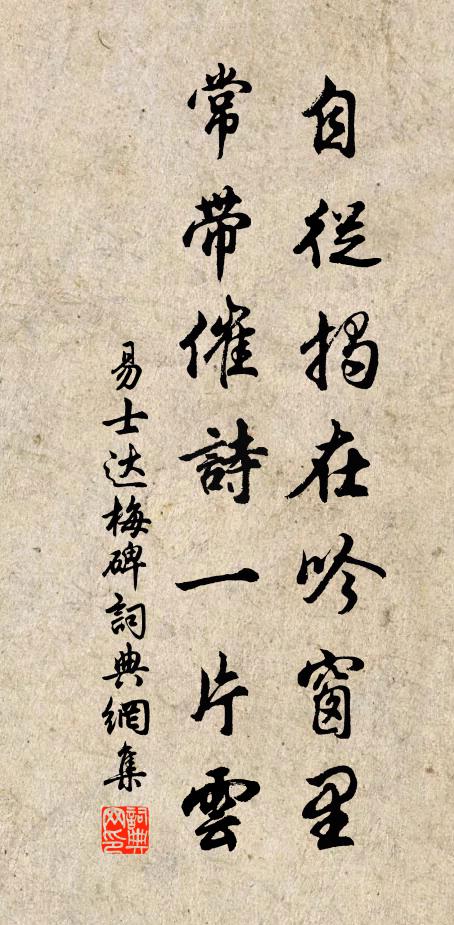 自從揭在吟窗里
常帶催詩一片雲
易士达梅碑詞典網集
詞典网印